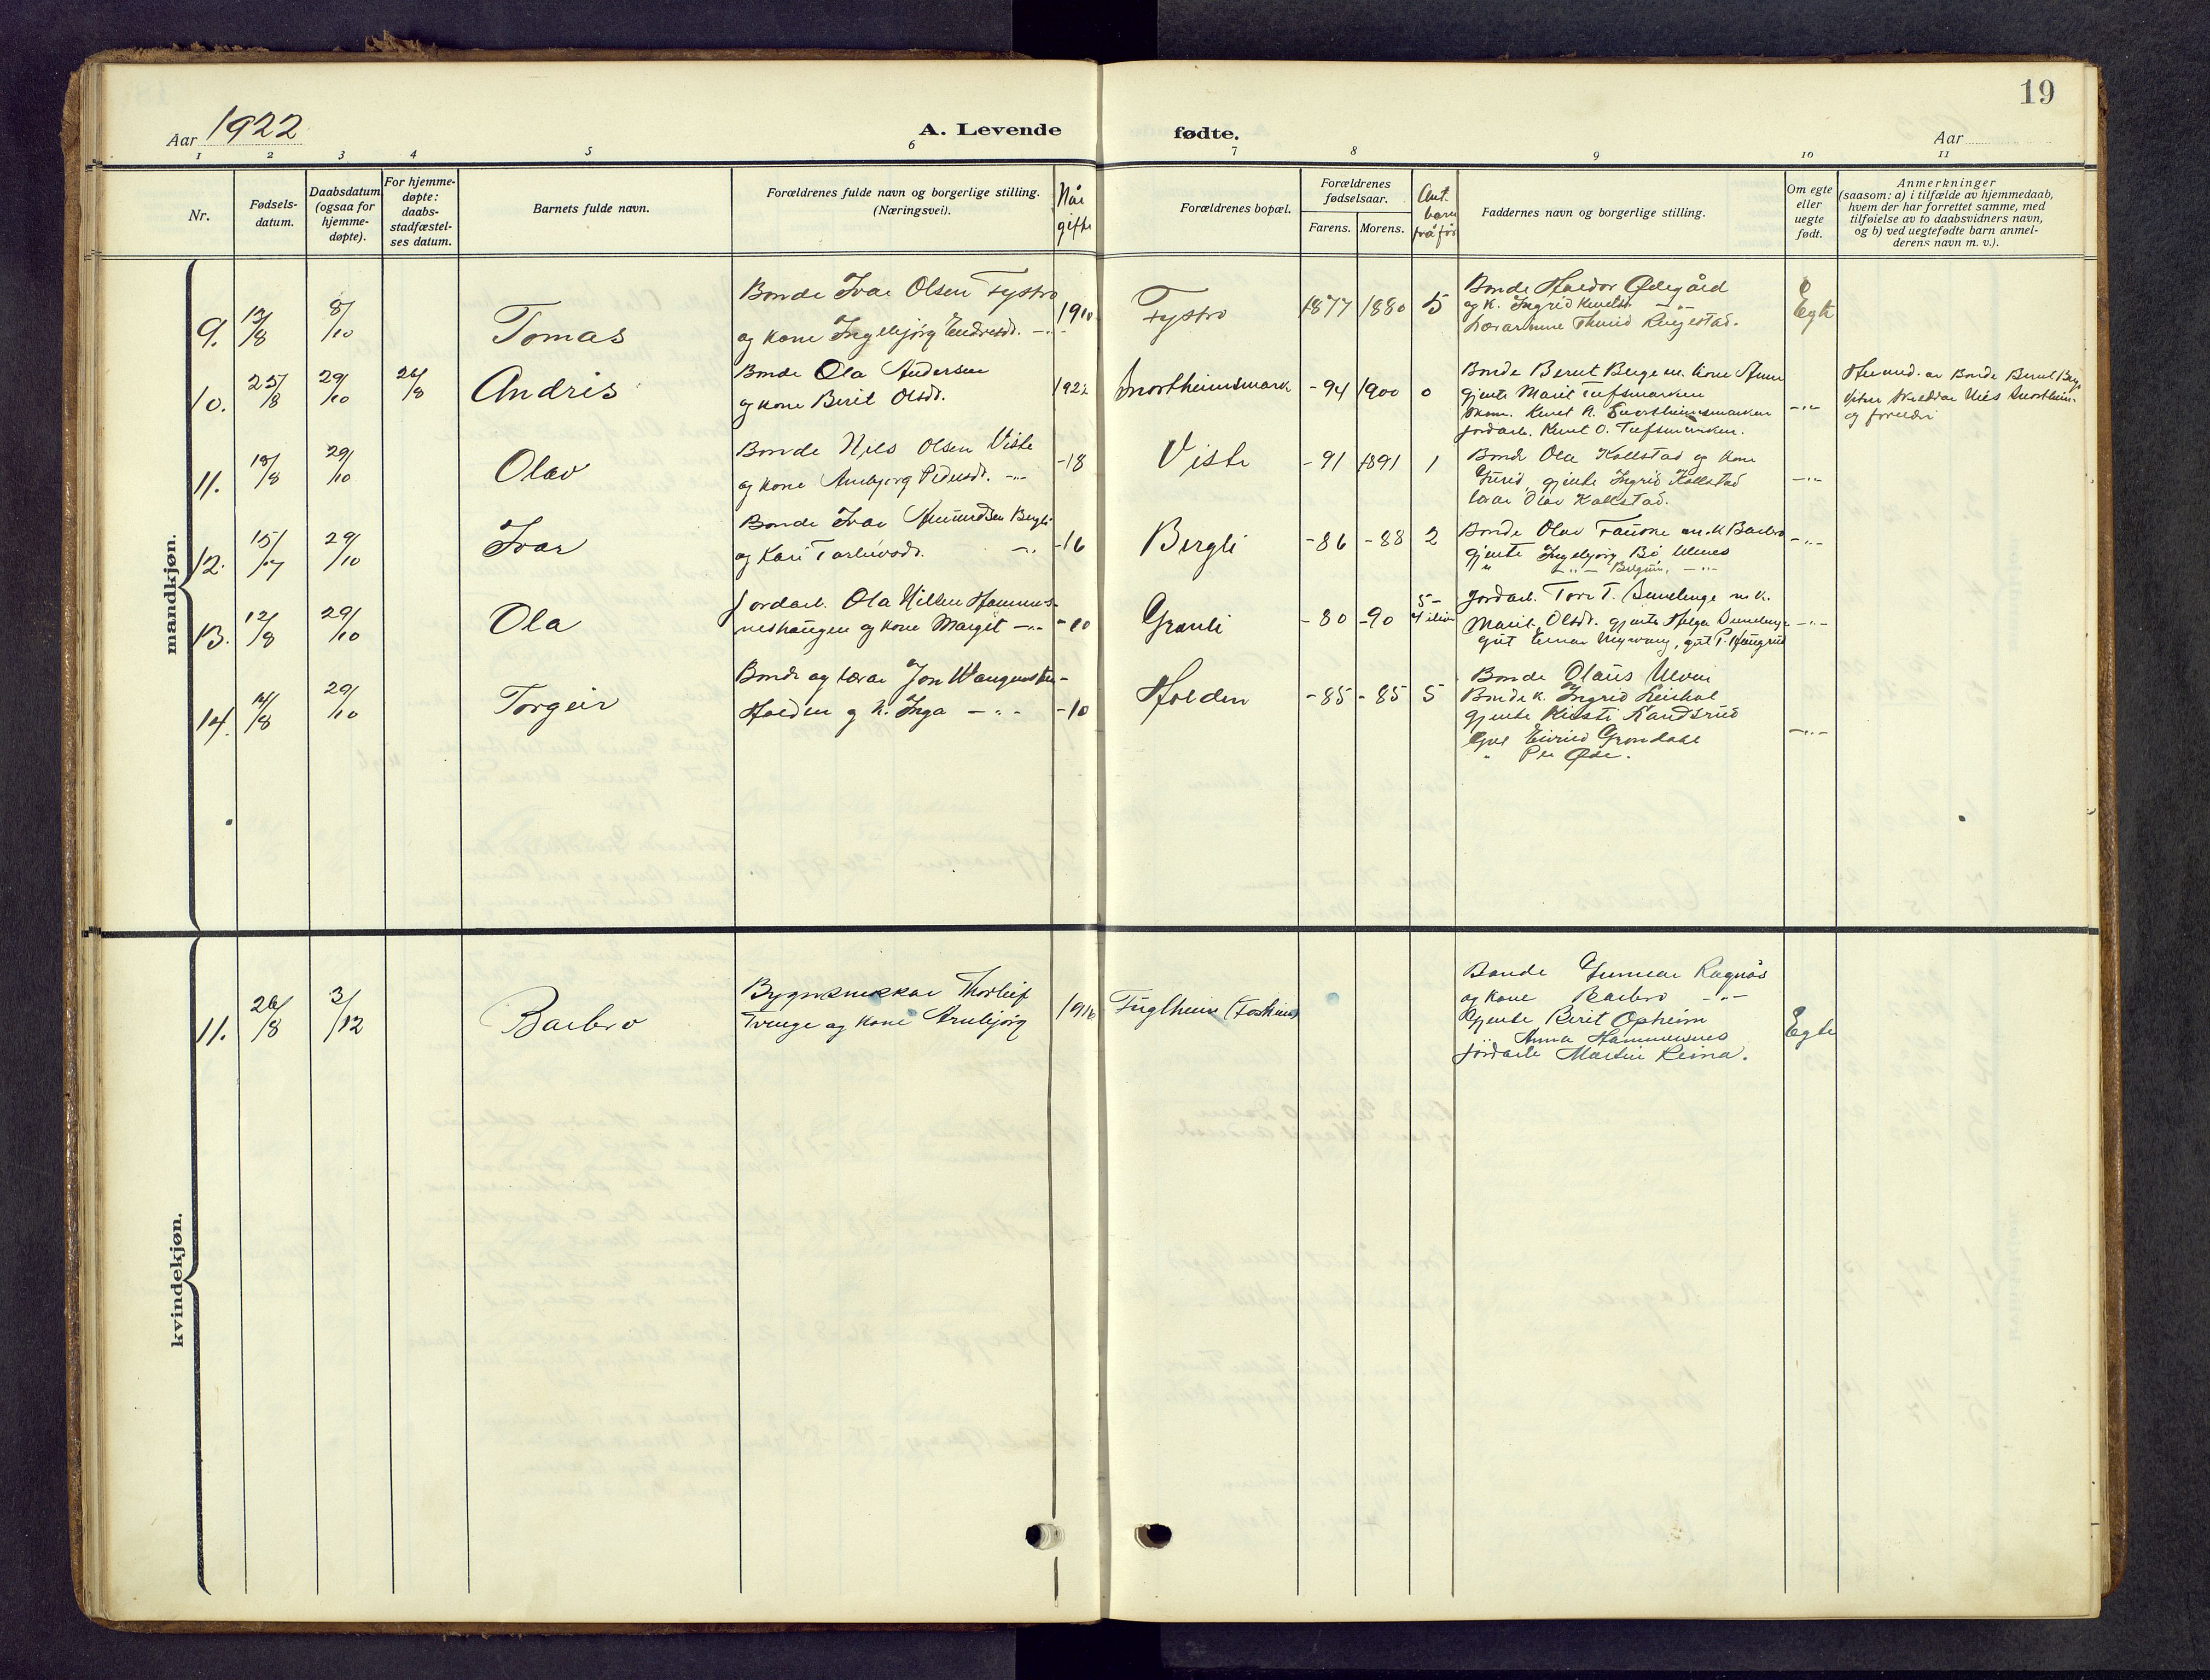 19
Aar 1922
A. Levende
fødte.
Aar
1 2 3 4 5 6 7 8 9 10 11
Nr.
Fødsels-
datum.
Daabsdatum
(ogsaa for
hjemme-
døpte).
For hjemme-
døpte:
daabs-
stadfæstel-
ses datum.
Barnets fulde navn.
Forældrenes fulde navn og borgerlige stilling.
(Næringsvei).
Når
gifte
Forældrenes bopæl.
Forældrenes
fødselsaar.
Farens. Morens.
Ant.
barn
frå før
Faddernes navn og borgerlige stilling.
Om egte
eller
uegte
født.
Anmerkninger
(saasom: a) i tilfælde av hjemmedaab,
hvem der har forrettet samme, med
tilføielse av to daabsvidners navn,
og b) ved uegtefødte barn anmel-
derens navn m. v.).
mandkjøn.
9. 13/8 8/10 Tomas
Bonde Ivar Olsen Fystro
og kone Ingebjørg Endresd. -"-
1910 Fystro 1877 1880 5
Bonde Haldor Ødegård
og k. Ingrid -"-
Lærarinne Thurid Ringestad.
Egte
10. 25/8 29/10 26/8 Andris
Bonde Ola Andersen
og kone Berit Olsd.
1922 Snortheimsmark -94 1900 0
Bonde Bernt Berge m. kone
gjente Marit Tufsmarken
Knut N. Snortheimsmarken
jordarb. Knut O. Tufsmarken.
-"-
av Bonde Bernt Berge
Nils Snortheim
og foreldri
11. 18/8 29/10 Olav
Bonde Nils Olsen Viste
og kone Pedersd. -"-
-18 Viste -91 1891 1
Bonde Ola Kollstad og kone
gjente Ingrid Kollstad
Olav Kollstad.
-"-
12. 15/7 29/10 Ivar
Bonde Ivar Amundsen Bergli
og Kari Torleivsd. -"-
-16 Bergli -86 -88 2
Bonde Olav Fauske m. k Barbro
gjente Ingebjørg Bø Ulnes
" -"- -"-
-"-
13. 12/8 29/10 Ola
Jordarb. Ola Nilsen Hammers-
neshaugen og kone Margit -"-
-10 Granli -80 -90 5-
4 iliv
Jordarb. Tore T. m. k.
Marit Olsd. gjente Helga
gut Einar gut P. Haugrud
-"-
14. 14/8 29/10 Torgeir
Bonde og lærar Jon
Holden og k. Inga -"-
-10 Holden -85 -85 5
Bonde Olaus Ulven
Bonde k. Ingrid
gjente Kirsti Randsrud
Gut Eivind Grøndahl
" Per Øde.
-"-
kvindekjøn.
11. 26/8 3/12 Barbro
Bygnsnekkar Thorleif
Tvenge og kone Arnbjørg
1916 Fuglheim (Fosheim)
Bonde Gunnar Rognås
og kone Barbro -"-
Gjente Berit Opheim
" Anna Hammersnes
jordarb Martin Reina.
Egte